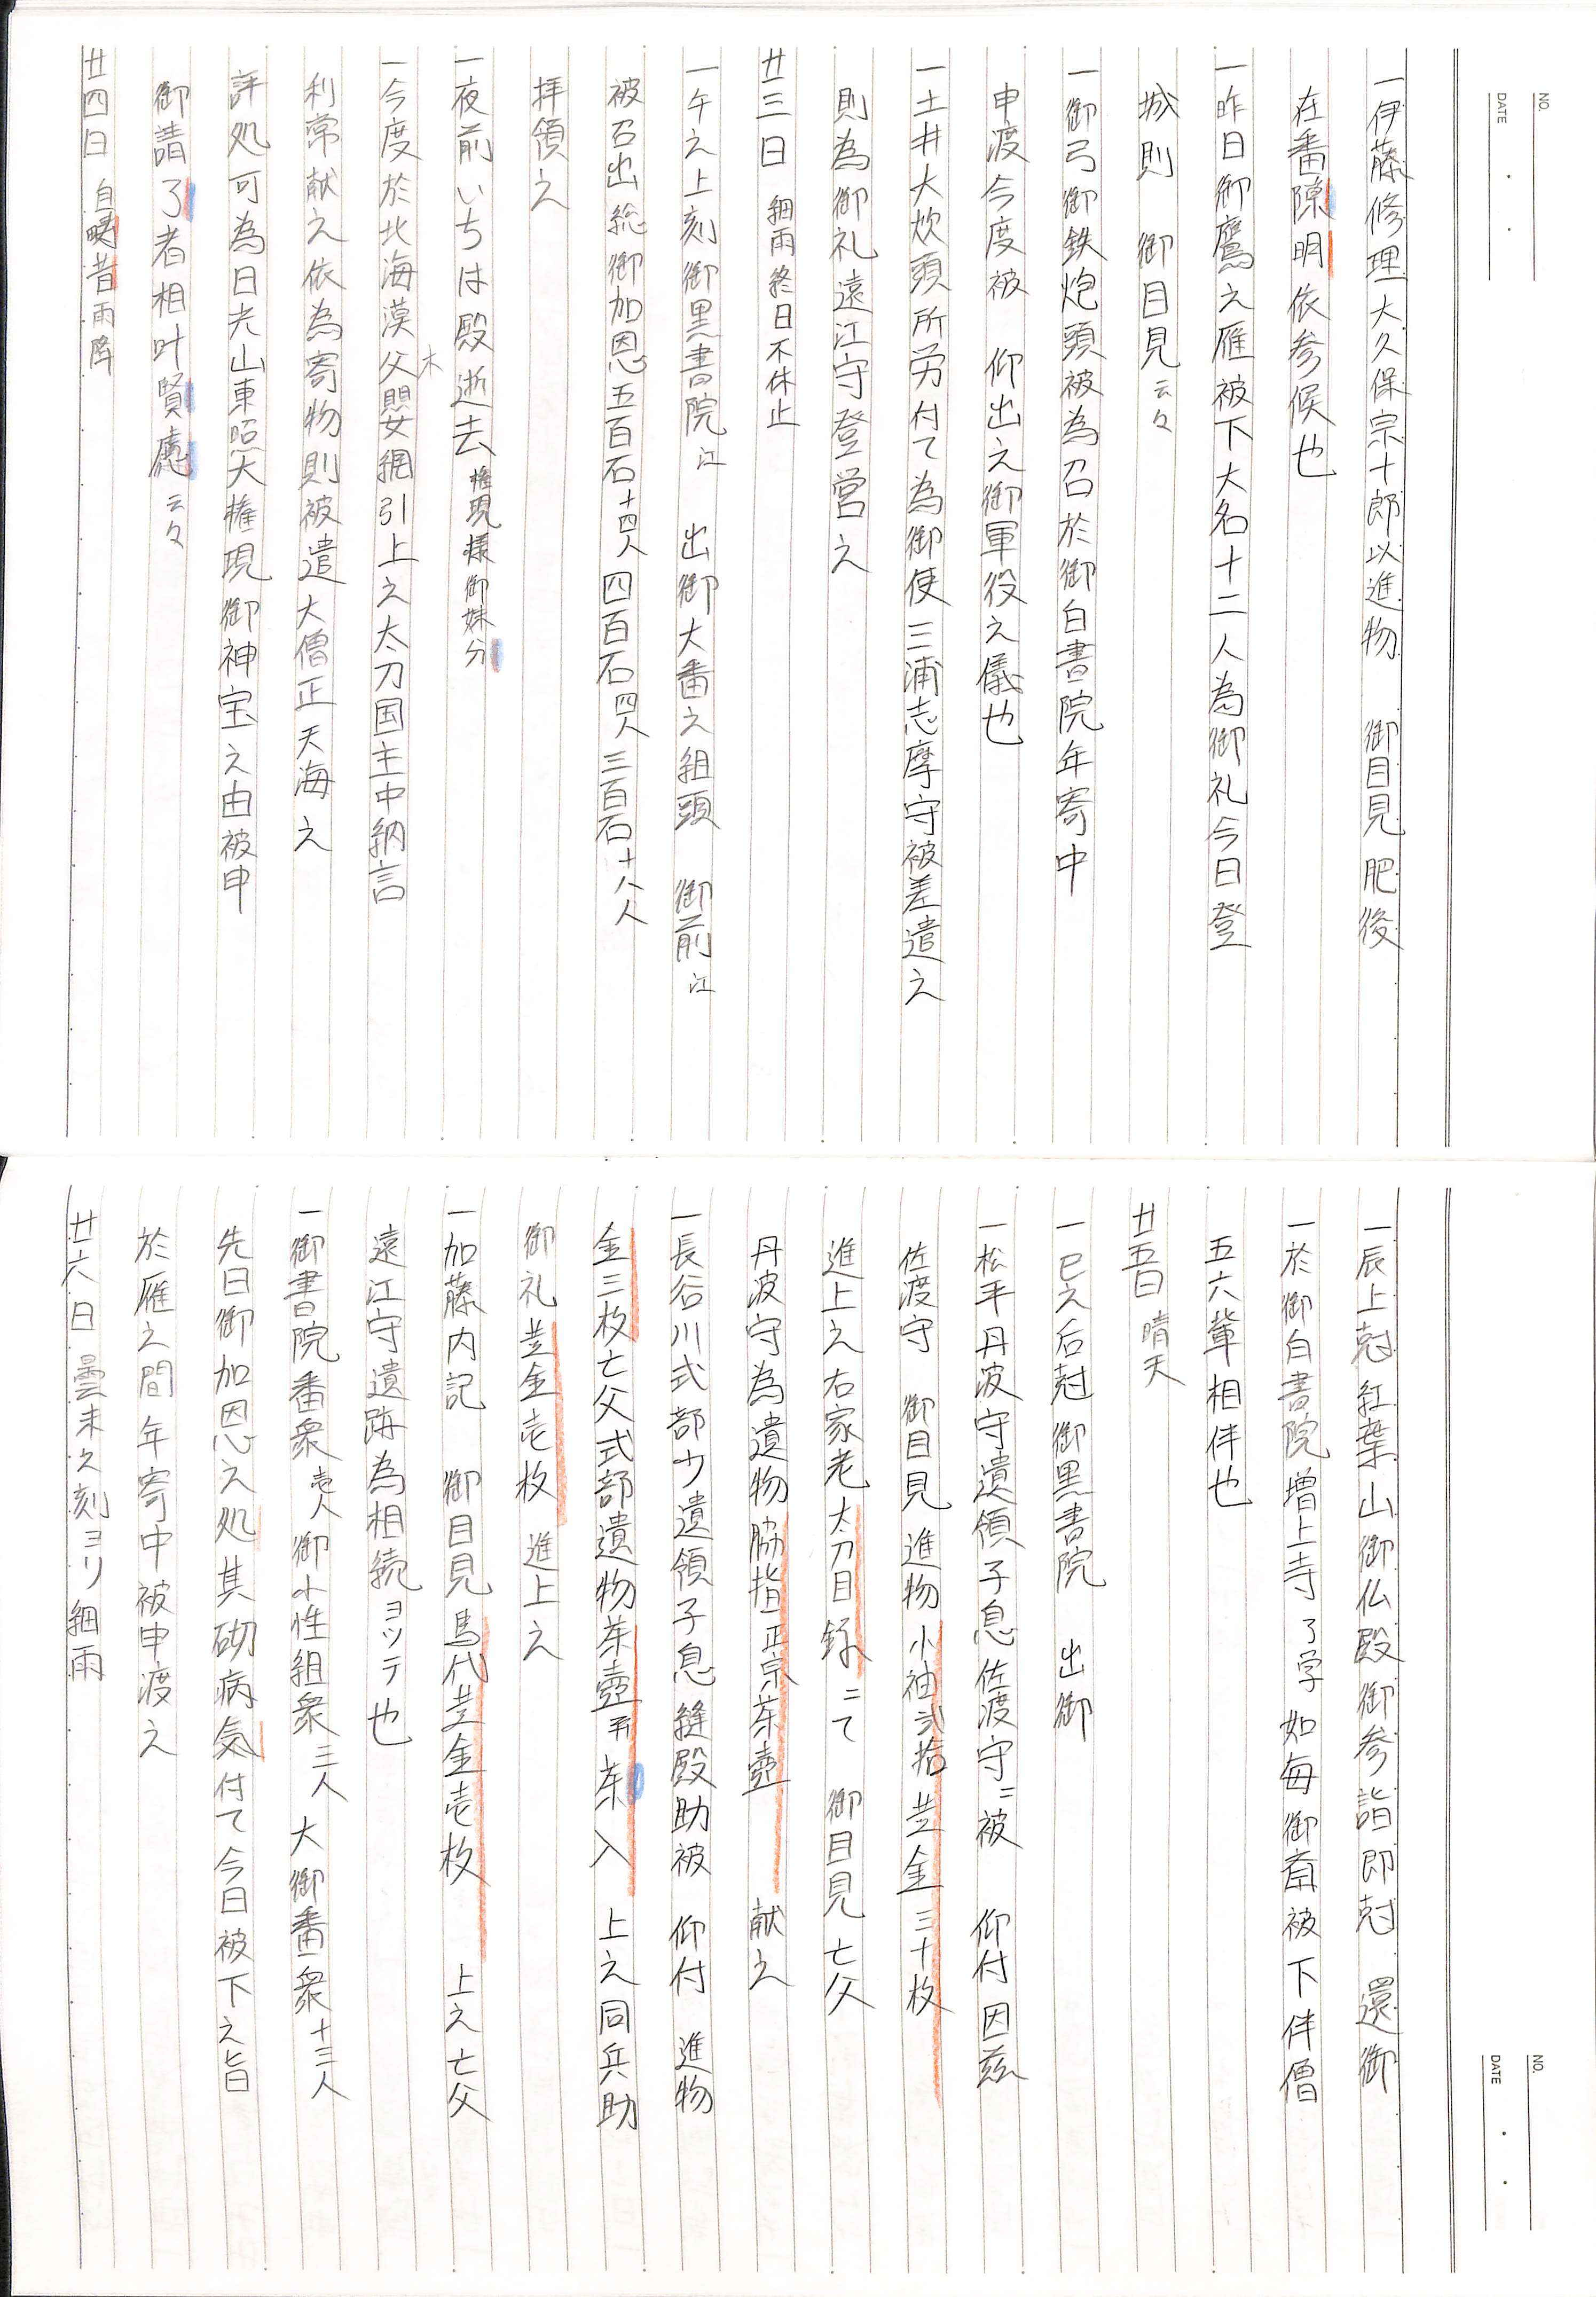 NO.
DATE
一伊藤修理大久保宗十郎以進物 御目見 肥後
在番隙明依参候也
一昨日御鷹之雁被下大名十二人為御礼今日登
城則 御目見云々
一御弓御鉄炮頭被為召於御白書院年寄中
申渡今度被 仰出之御軍役之儀也
一土井大炊頭所労付て為御使三浦志摩守被差遣之
則為御礼遠江守登営之
廿三日 細雨終日不休止
一午之上刻御黒書院江 出御大番之組頭 御前江
被召出総御加恩五百石十四人四百石四人三百石十八人
拝領之
一夜前いちは殿逝去権現様御妹分
一今度於北海漠父朢女網引上之太刀国主中納言
木
利常献之依為寄物則被遣大僧正天海之
詳処可為日光山東照大権現御神宝之由被申
御請了者相叶賢慮云々
廿四日 自暁昔雨降
NO.
DATE
一辰上尅紅葉山御仏殿御参詣即尅 還御
一於御白書院増上寺了学如毎御斎被下伴僧
五六輩相伴也
廿五日 晴天
一巳之后尅御黒書院 出御
一松平丹波守遺領子息佐渡守ニ被 仰付因茲
佐渡守 御目見進物小袖弐拾並金三十枚
進上之右家老太刀目録ニて 御目見亡父
丹波守為遺物脇指正宗茶壺 献之
一長谷川式部少遺領子息縫殿助被 仰付 進物
金三枚亡父式部遺物茶壺并茶入 上之同兵助
御礼並金壱枚 進上之
一加藤内記 御目見馬代並金壱枚 上之亡父
遠江守遺跡為相続ヨツテ也
一御書院番衆壱人御小性組衆三人 大御番衆十三人
先日御加恩之処其砌病気付て今日被下之旨
於雁之間年寄中被申渡之
廿六日 曇未之刻ヨリ細雨